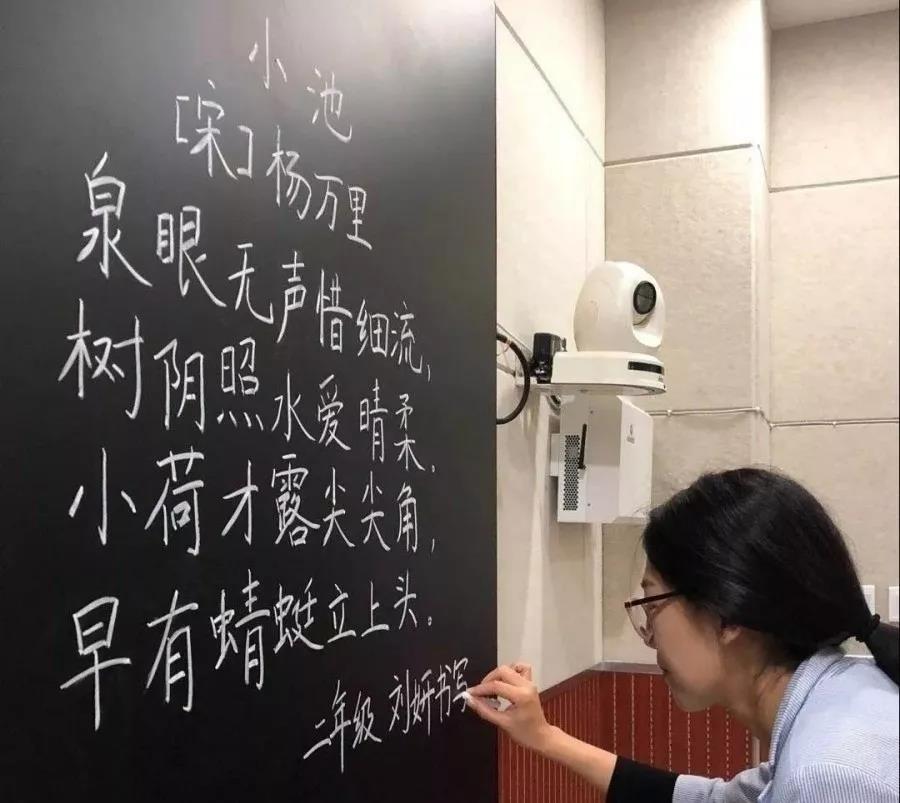 小池
[宋]杨万里
泉眼无声惜细流,
树阴照水爱晴柔。
小荷才露尖尖角,
早有蜻蜓立上头。
二年级 刘妍书写